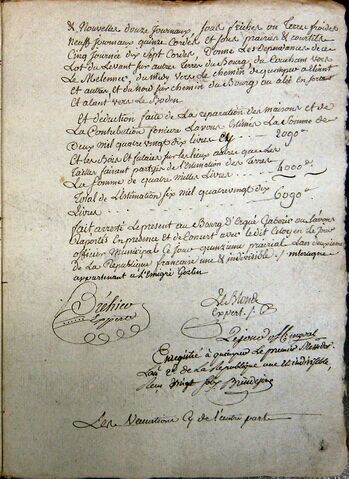 & Nouvelles douze Journaux, sous friches ou Terre froides
Neuf Journaux quinze Cordes et sous prairies & courtils
Cinq Journaux dix Sept Cordes. Donne Les Dependances de ce
Lot du Levant sur autre Terre du Bourg, du Couchant vers
Le Melennec, du Midy vers Le chemin de quimper allant
et autres, et du Nord sur chemin du Bourg ou alé
et alant vers Le
et déduction faite de La reparation des maisons et de
La Contribution fonciere Lavons Estimés La Somme de
Deux mil quatre vingt dix Livres Cy 2090#
et Les Bois et futaies sur les lieux autre que Les
faisant partyes de L'estimation des Terres
La Somme de quatre milles Livres 4000#
Total de L'estimation six mil quatre vingt dix
Livres 6090#
fait arresté Le present au Bourg D'Ergué Gaberic ou Lavons
raportés En presence et de Concert avec Le dit Citoyen Le Jour
officier Municipal Ce Jour quinzieme prairial Lan deuxieme
de La Republique francaise une & indivisible / interligne
appartenant a L'emigré Geslin
Brehier
Expert
Le Blond
Expert
Enregistré à quimper Le premier Messidor
Lan 2e de La Republique une et indivisible,
Reçu vingt sols
Les Variations Cy de L'autre part